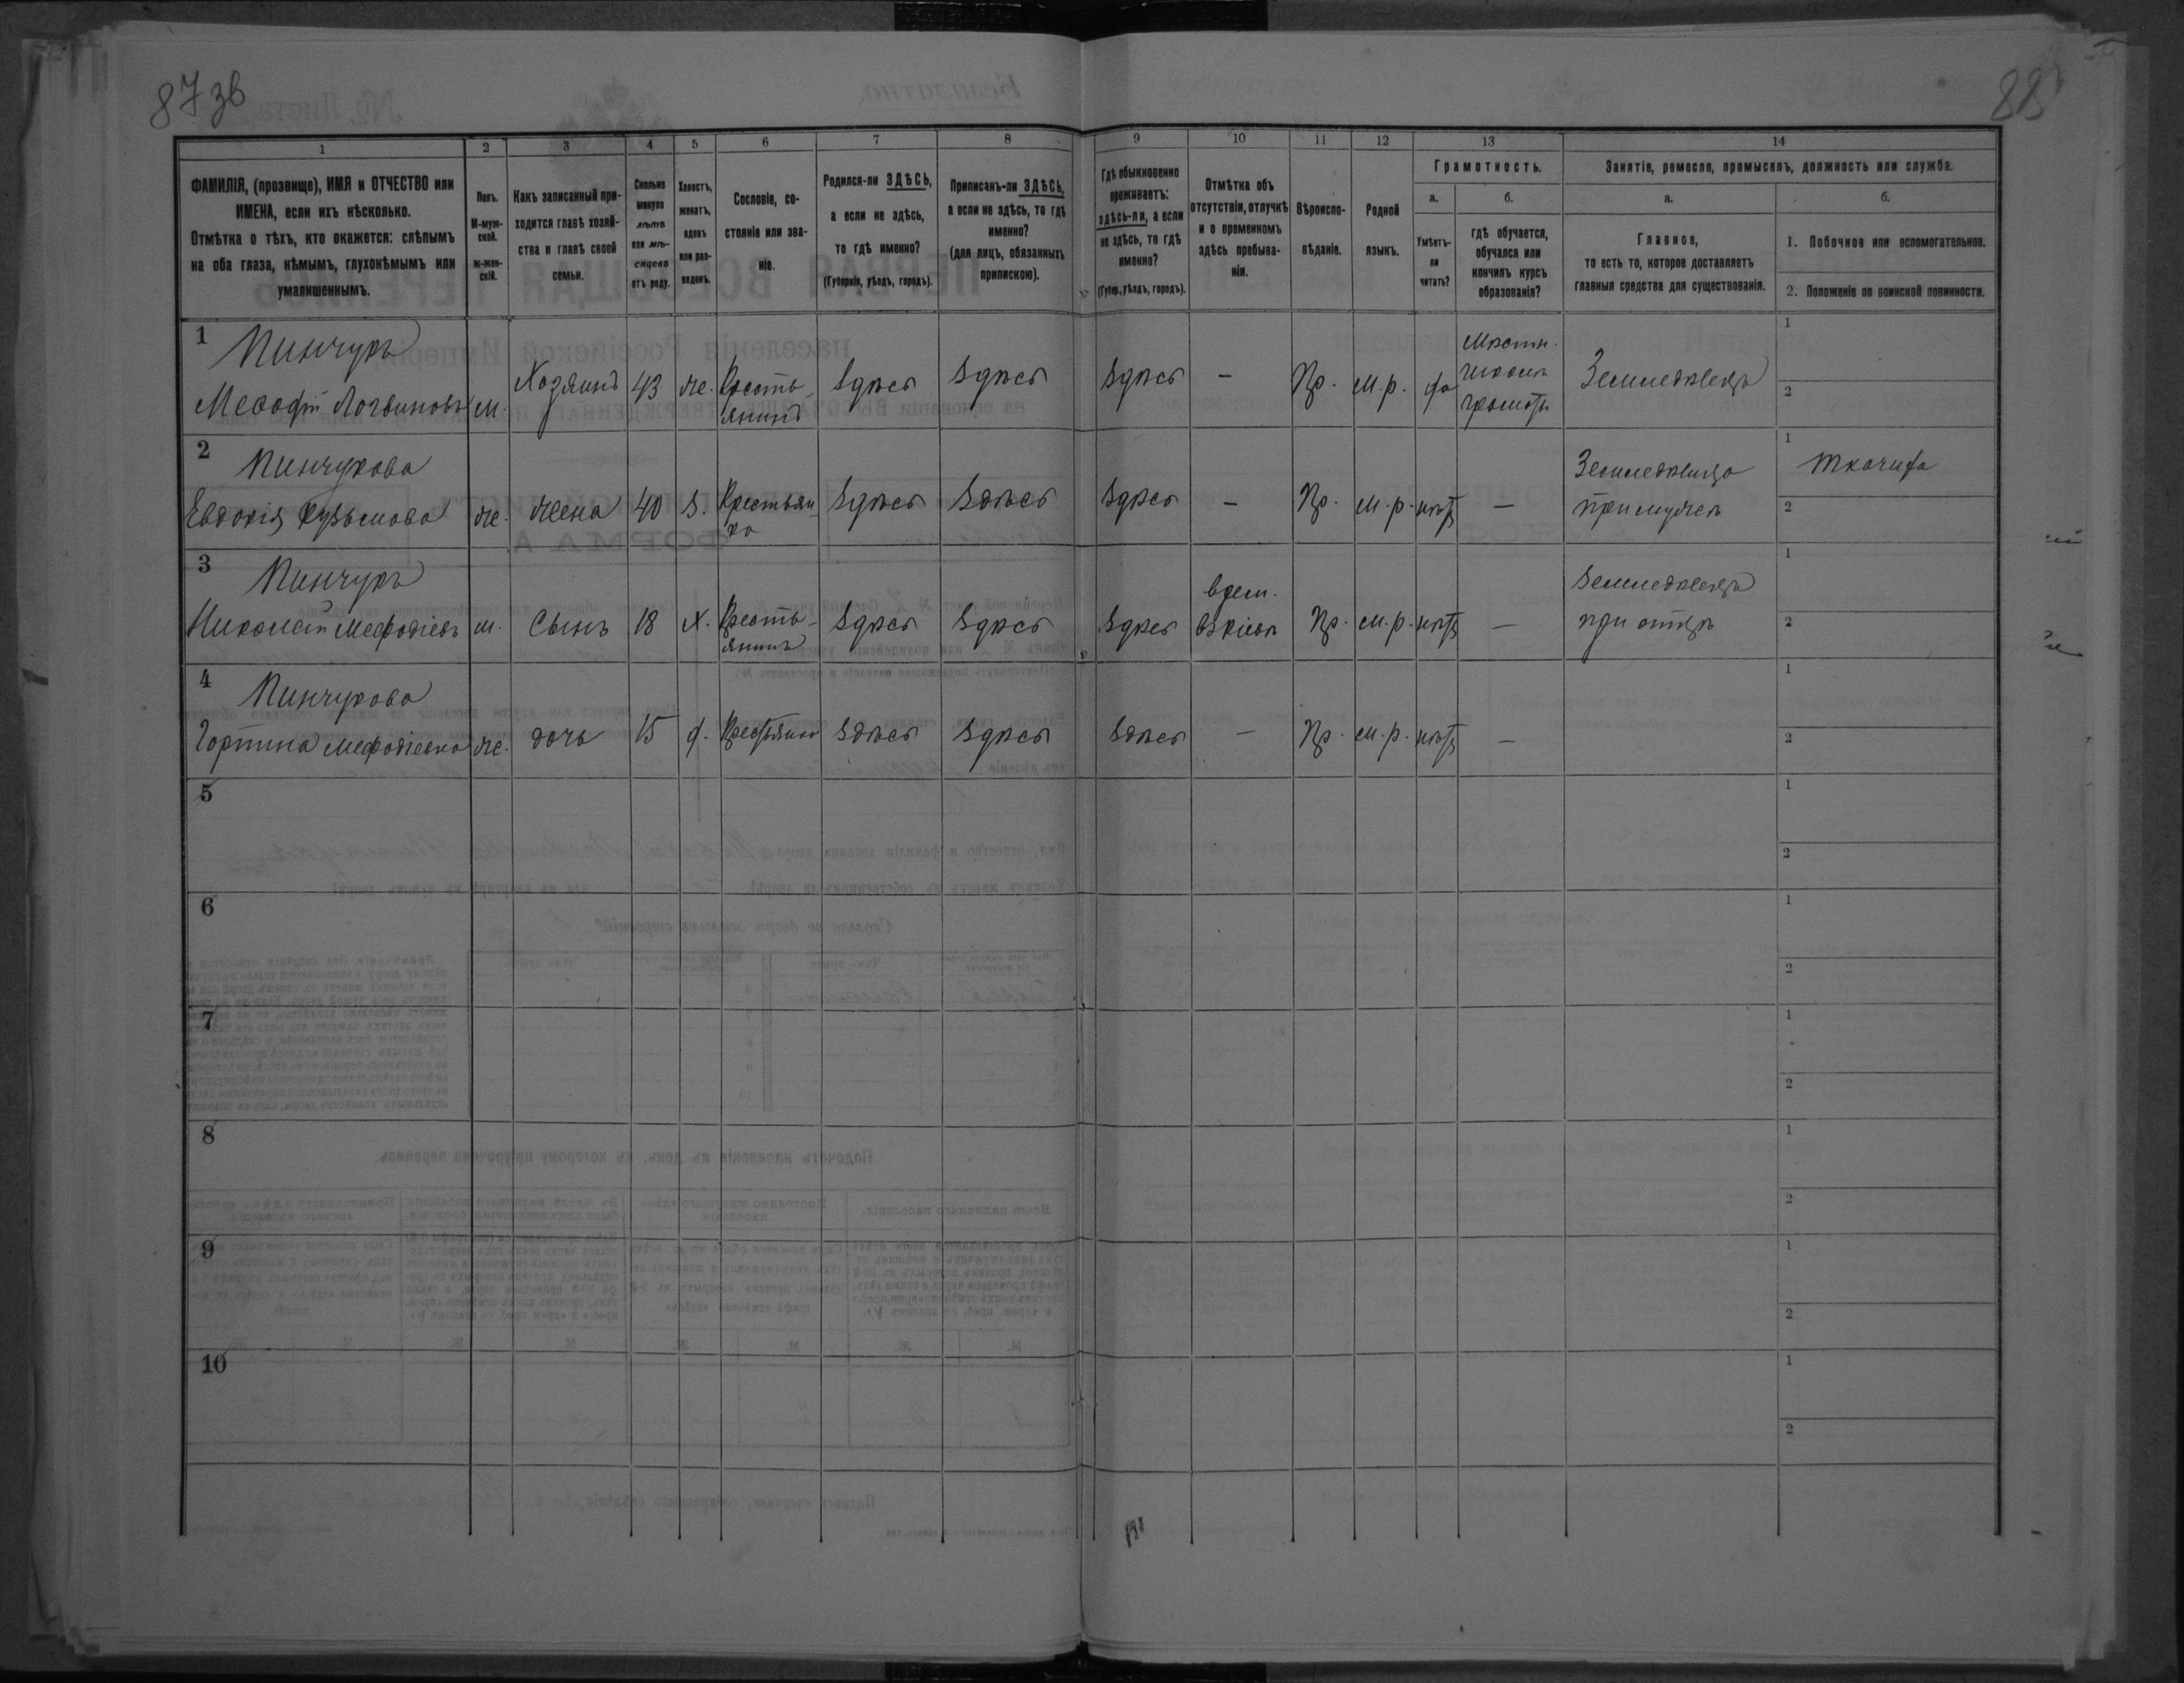 87 зв
88
1
2
3
4
5
6
7
8
9
10
11
12
13
14
ФАМИЛІЯ, (прозвище), ИМЯ и ОТЧЕСТВО или
ИМЕНА, если ихъ нѣсколько.
Отмѣтка о тѣхъ, кто окажется: слѣпымъ
на оба глаза, нѣмымъ, глухонѣмымъ или
умалишеннымъ.
Полъ.
М-муж-
ской.
ж-жен-
скій.
Какъ записанный при-
ходится главѣ хозяй-
ства и главѣ своей
семьи.
Сколько
минуло
лѣтъ
или мѣ-
сяцевъ
отъ роду.
Холостъ,
женатъ,
вдовъ
или раз-
веденъ.
Сословіе, со-
стояніе или зва-
ніе.
Родился-ли ЗДѢСЬ,
а если не здѣсь,
то гдѣ именно?
(Губернія, уѣздъ, городъ).
Приписанъ-ли ЗДѢСЬ,
а если не здѣсь, то гдѣ
именно?
(для лицъ, обязанныхъ
припискою).
Гдѣ обыкновенно
проживаетъ:
здѣсь-ли, а если
не здѣсь, то гдѣ
именно?
(Губер., уѣздъ, городъ).
Отмѣтка объ
отсутствіи, отлучкѣ
и о временномъ
здѣсь пребыва-
ніи.
Вѣроиспо-
вѣданіе.
Родной
языкъ.
Грамотность.
а.
Умѣетъ-
ли
читать?
б.
гдѣ обучается,
обучался или
кончилъ курсъ
образованія?
Занятіе, ремесло, промыселъ, должность или служба.
а.
Главное,
то есть то, которое доставляетъ
главныя средства для существованія.
б.
1. Побочное или вспомогательное.
2. Положеніе по воинской повинности.
1
Пинчукъ
Мефодій Логвиновъ
м.
Хозяинъ
43
же.
Кресть-
янинъ
Здѣсь
Здѣсь
Здѣсь
-
Пр.
м.р.
да
школѣ
грамотѣ
Земледѣлецъ
1
2
2
Пинчукова
Евдокія Кузьмова
же.
жена
40
З.
Крестьян-
ка
Здѣсь
Здѣсь
Здѣсь
-
Пр.
м.р.
нѣтъ
-
Земледѣлица
при мужѣ
1
Ткачиха
2
3
Пинчукъ
Николай Мефодіевъ
м.
Сынъ
18
х.
Кресть-
янинъ
Здѣсь
Здѣсь
Здѣсь
врем.
въ Кіевѣ
Пр.
м.р.
нѣтъ
-
Земледѣлецъ
при отцѣ
1
2
4
Пинчукова
Горпина Мефодіевна
же.
дочь
15
д.
Здѣсь
Здѣсь
Здѣсь
-
Пр.
м.р.
нѣтъ
-
1
2
5
1
2
6
1
2
7
1
2
8
1
2
9
1
2
10
1
2